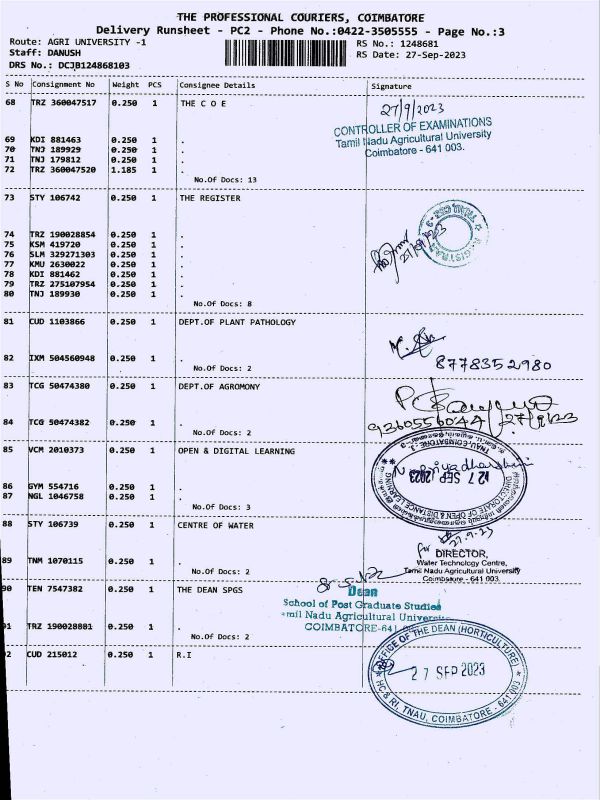 THE PROFESSIONAL COURIERS, COIMBATORE
Delivery Runsheet - PC2 - Phone No.:0422-3505555 - Page No.:3
Route: AGRI UNIVERSITY -1
Staff: DANUSH
DRS No.: DCJB124868103
RS No.: 1248681
RS Date: 27-Sep-2023
S No Consignment No Weight PCS Consignee Details Signature
68 TRZ 360047517 0.250 1 THE C O E
27/9/2023
CONTROLLER OF EXAMINATIONS
Tamil Nadu Agricultural University
Coimbatore - 641 003.
69 KDI 881463 0.250 1 .
70 TNJ 189929 0.250 1 .
71 TNJ 179812 0.250 1 .
72 TRZ 360047520 1.185 1 .
No.Of Docs: 13
73 STY 106742 0.250 1 THE REGISTER
74 TRZ 190028854 0.250 1 .
75 KSM 419720 0.250 1 .
76 SLM 329271303 0.250 1 .
77 KMU 2630022 0.250 1 .
78 KDI 881462 0.250 1 .
79 TRZ 275107954 0.250 1 .
80 TNJ 189930 0.250 1 .
No.Of Docs: 8
81 CUD 1103866 0.250 1 DEPT.OF PLANT PATHOLOGY
82 IXM 504560948 0.250 1 .
No.Of Docs: 2
8778352980
83 TCG 50474380 0.250 1 DEPT.OF AGROMONY
84 TCG 50474382 0.250 1 .
No.Of Docs: 2
9360556044 27/9/23
85 VCM 2010373 0.250 1 OPEN & DIGITAL LEARNING
27 SEP 2023
DIRECTORATE OF OPEN & DISTANCE LEARNING
TNAU, COIMBATORE - 3
86 GYM 554716 0.250 1 .
87 NGL 1046758 0.250 1 .
No.Of Docs: 3
88 STY 106739 0.250 1 CENTRE OF WATER
27-9-23
for DIRECTOR,
Water Technology Centre,
Tamil Nadu Agricultural University
Coimbatore - 641 003.
89 TNM 1070115 0.250 1 .
No.Of Docs: 2
90 TEN 7547382 0.250 1 THE DEAN SPGS
Dean
School of Post Graduate Studies
amil Nadu Agricultural University
COIMBATORE-641
91 TRZ 190028881 0.250 1 .
No.Of Docs: 2
92 CUD 215012 0.250 1 R.I
OFFICE OF THE DEAN (HORTICULTURE)
27 SEP 2023
HC & RI, TNAU, COIMBATORE - 641 003